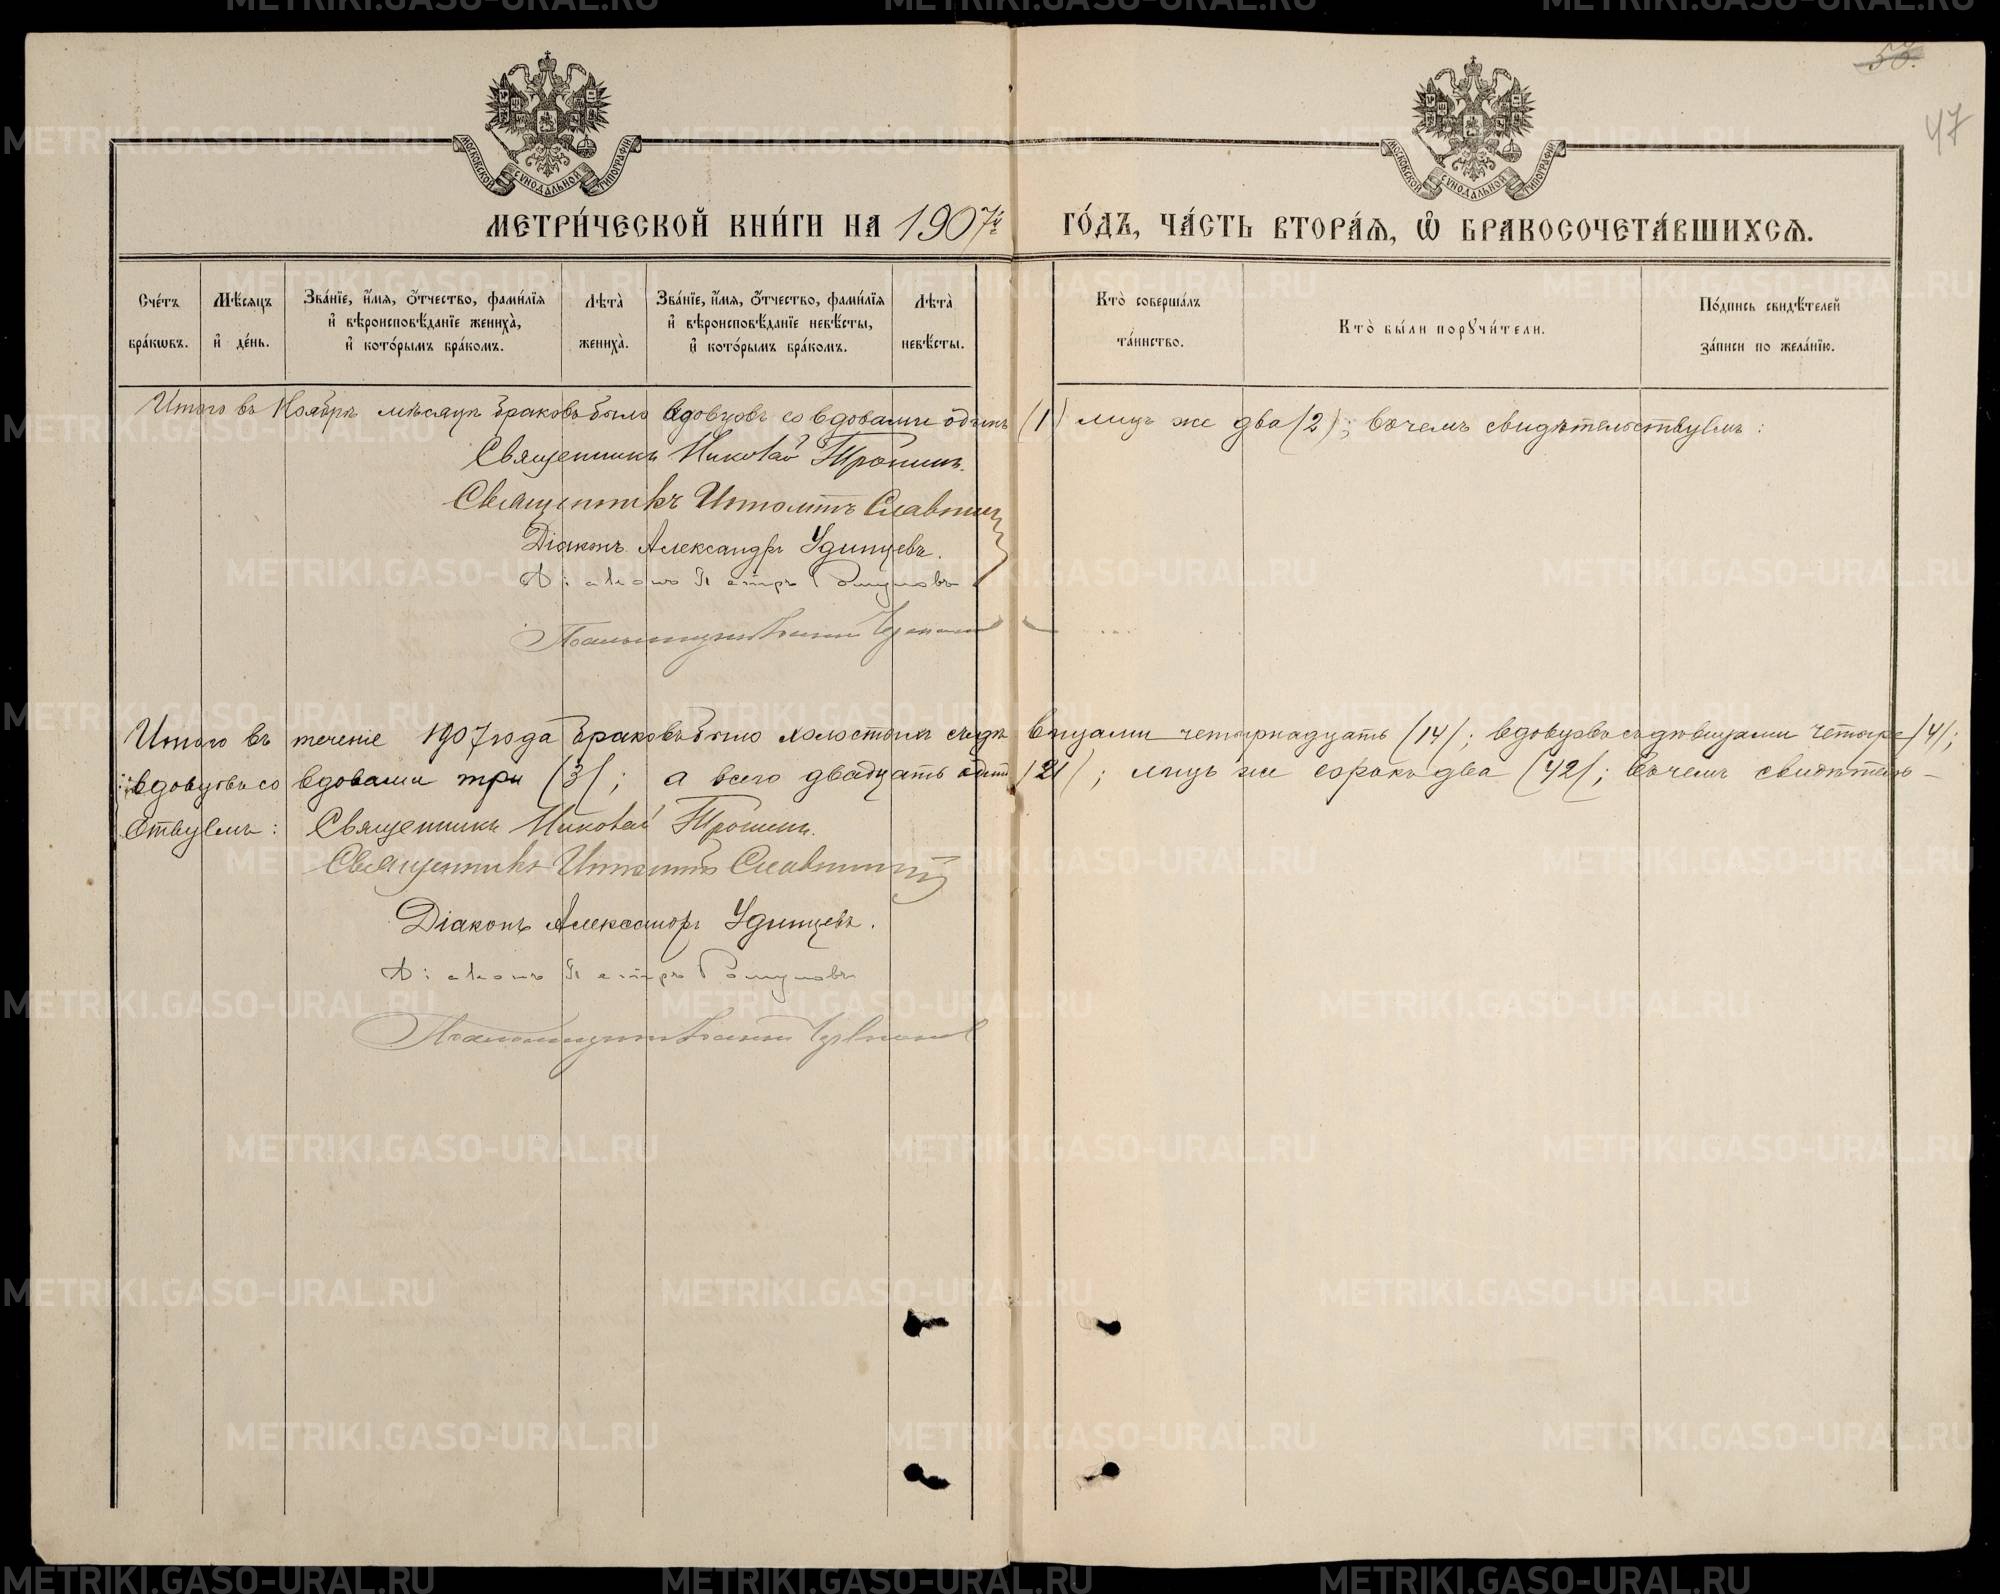 58.
47
МОСКОВСКОЙ СѴНОДАЛЬНОЙ ТИПОГРАФІИ
МОСКОВСКОЙ СѴНОДАЛЬНОЙ ТИПОГРАФІИ
МЕТРИ́ЧЕСКОЙ КНИ́ГИ НА 1907й ГО́ДЪ, ЧА́СТЬ ВТОРА́Ѧ, Ѽ БРАКОСОЧЕТА́ВШИХСѦ.
Сче́тъ бра́кωвъ.
Мѣ́сѧцъ и҆ де́нь.
Зва́нїе, и҆́мѧ, ѻ҆́тчество, фами́лїѧ и҆ вѣроисповѣ́данїе жениха̀, и҆ кото́рымъ бра́комъ.
Лѣта̀ жениха̀.
Зва́нїе, и҆́мѧ, ѻ҆́тчество, фами́лїѧ и҆ вѣроисповѣ́данїе невѣ́сты, и҆ кото́рымъ бра́комъ.
Лѣта̀ невѣ́сты.
Кто̀ соверша́лъ та́инство.
Кто̀ бы́ли порꙋчи́тели.
По́дпись свидѣ́телей за́писи по жела́нїю.
Итого въ Ноябрѣ мѣсяцѣ браковъ было вдовцовъ со вдовами одинъ (1) лицъ же два (2); въ чемъ свидѣтельствуемъ:
Священникъ Николай Трошинъ.
Священникъ Ипполитъ Славнин
Діаконъ Александръ Удинцевъ.
Діаконъ Петръ
Псаломщикъ
Итого въ теченіе 1907 года браковъ было холостыхъ съ дѣвицами четырнадцать (14); вдовцовъ съ дѣвицами четыре (4);
вдовцовъ со вдовами три (3); а всего двадцать одинъ (21); лицъ же сорокъ два (42); въ чемъ свидѣтель-
ствуемъ: Священникъ Николай Трошинъ.
Священникъ Ипполитъ Славнин
Діаконъ Александръ Удинцевъ.
Діаконъ Петръ
Псаломщикъ
METRIKI.GASO-URAL.RU